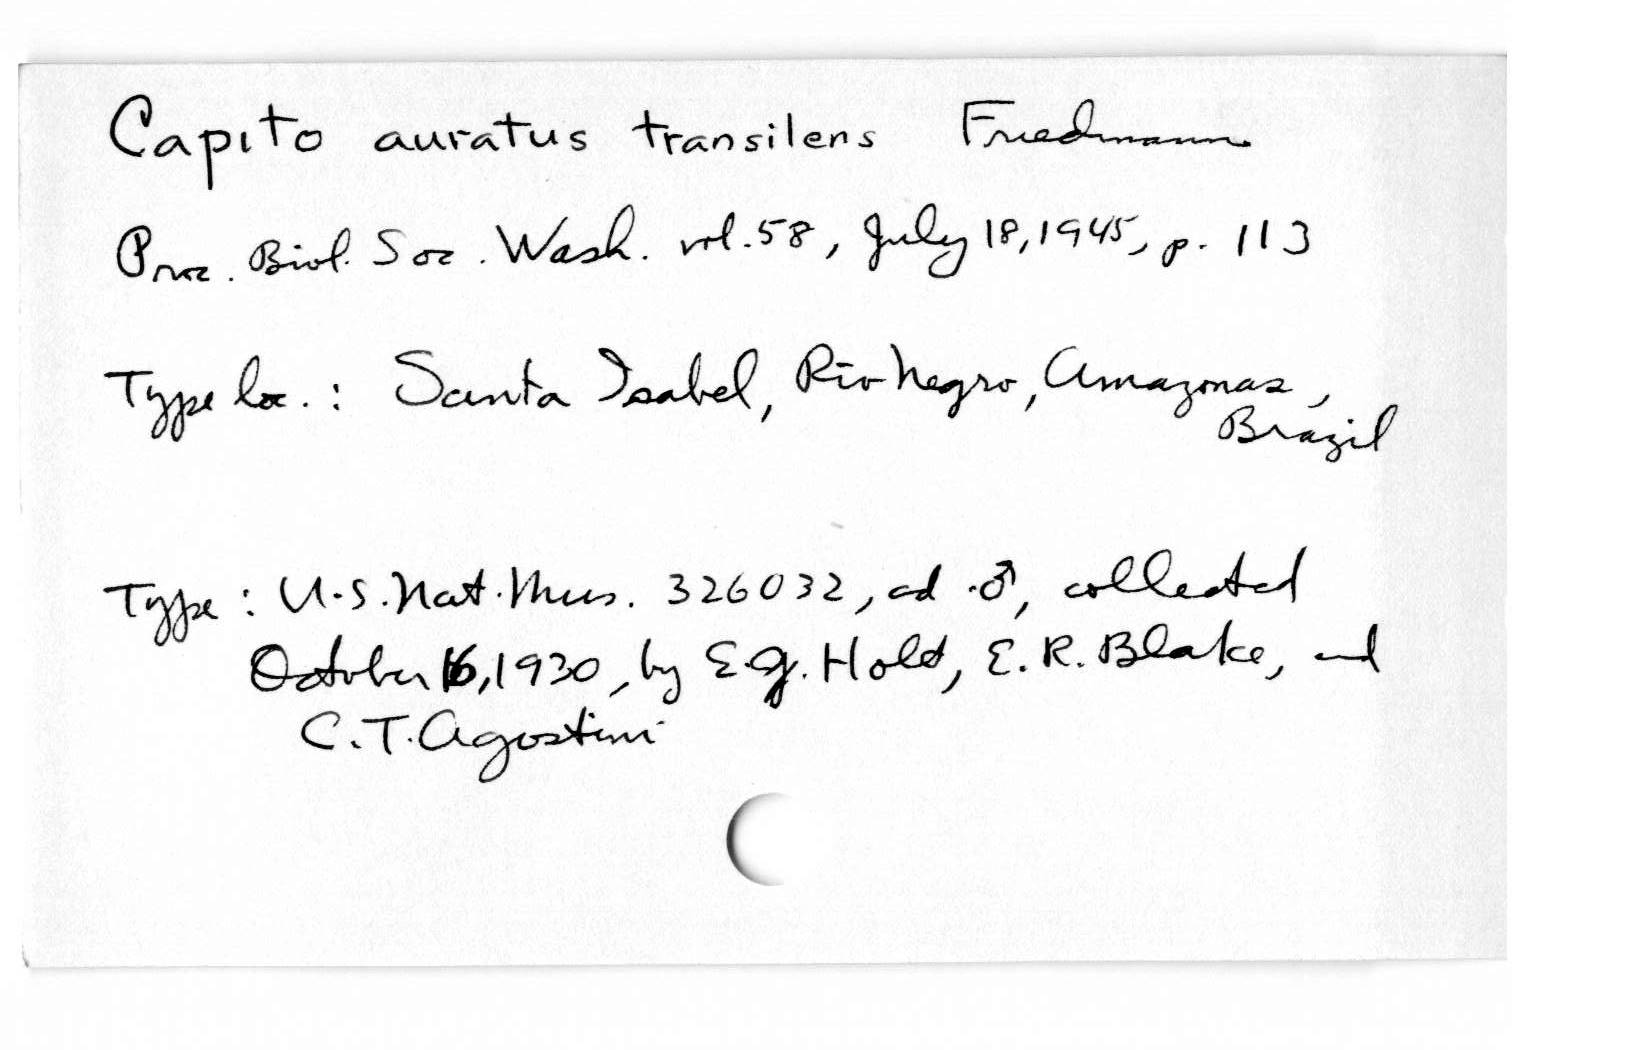 Capito auratus transilens Friedmann
Proc. Biol. Soc. Wash. vol. 58, July 18, 1945, p. 113
Type loc.: Santa Isabel, Rio Negro, Amazonas,
Brazil
Type: U.S. Nat. Mus. 326032, ad. ♂, collected
October 16, 1930, by E.G. Holt, E.R. Blake, and
C.T. Agostini